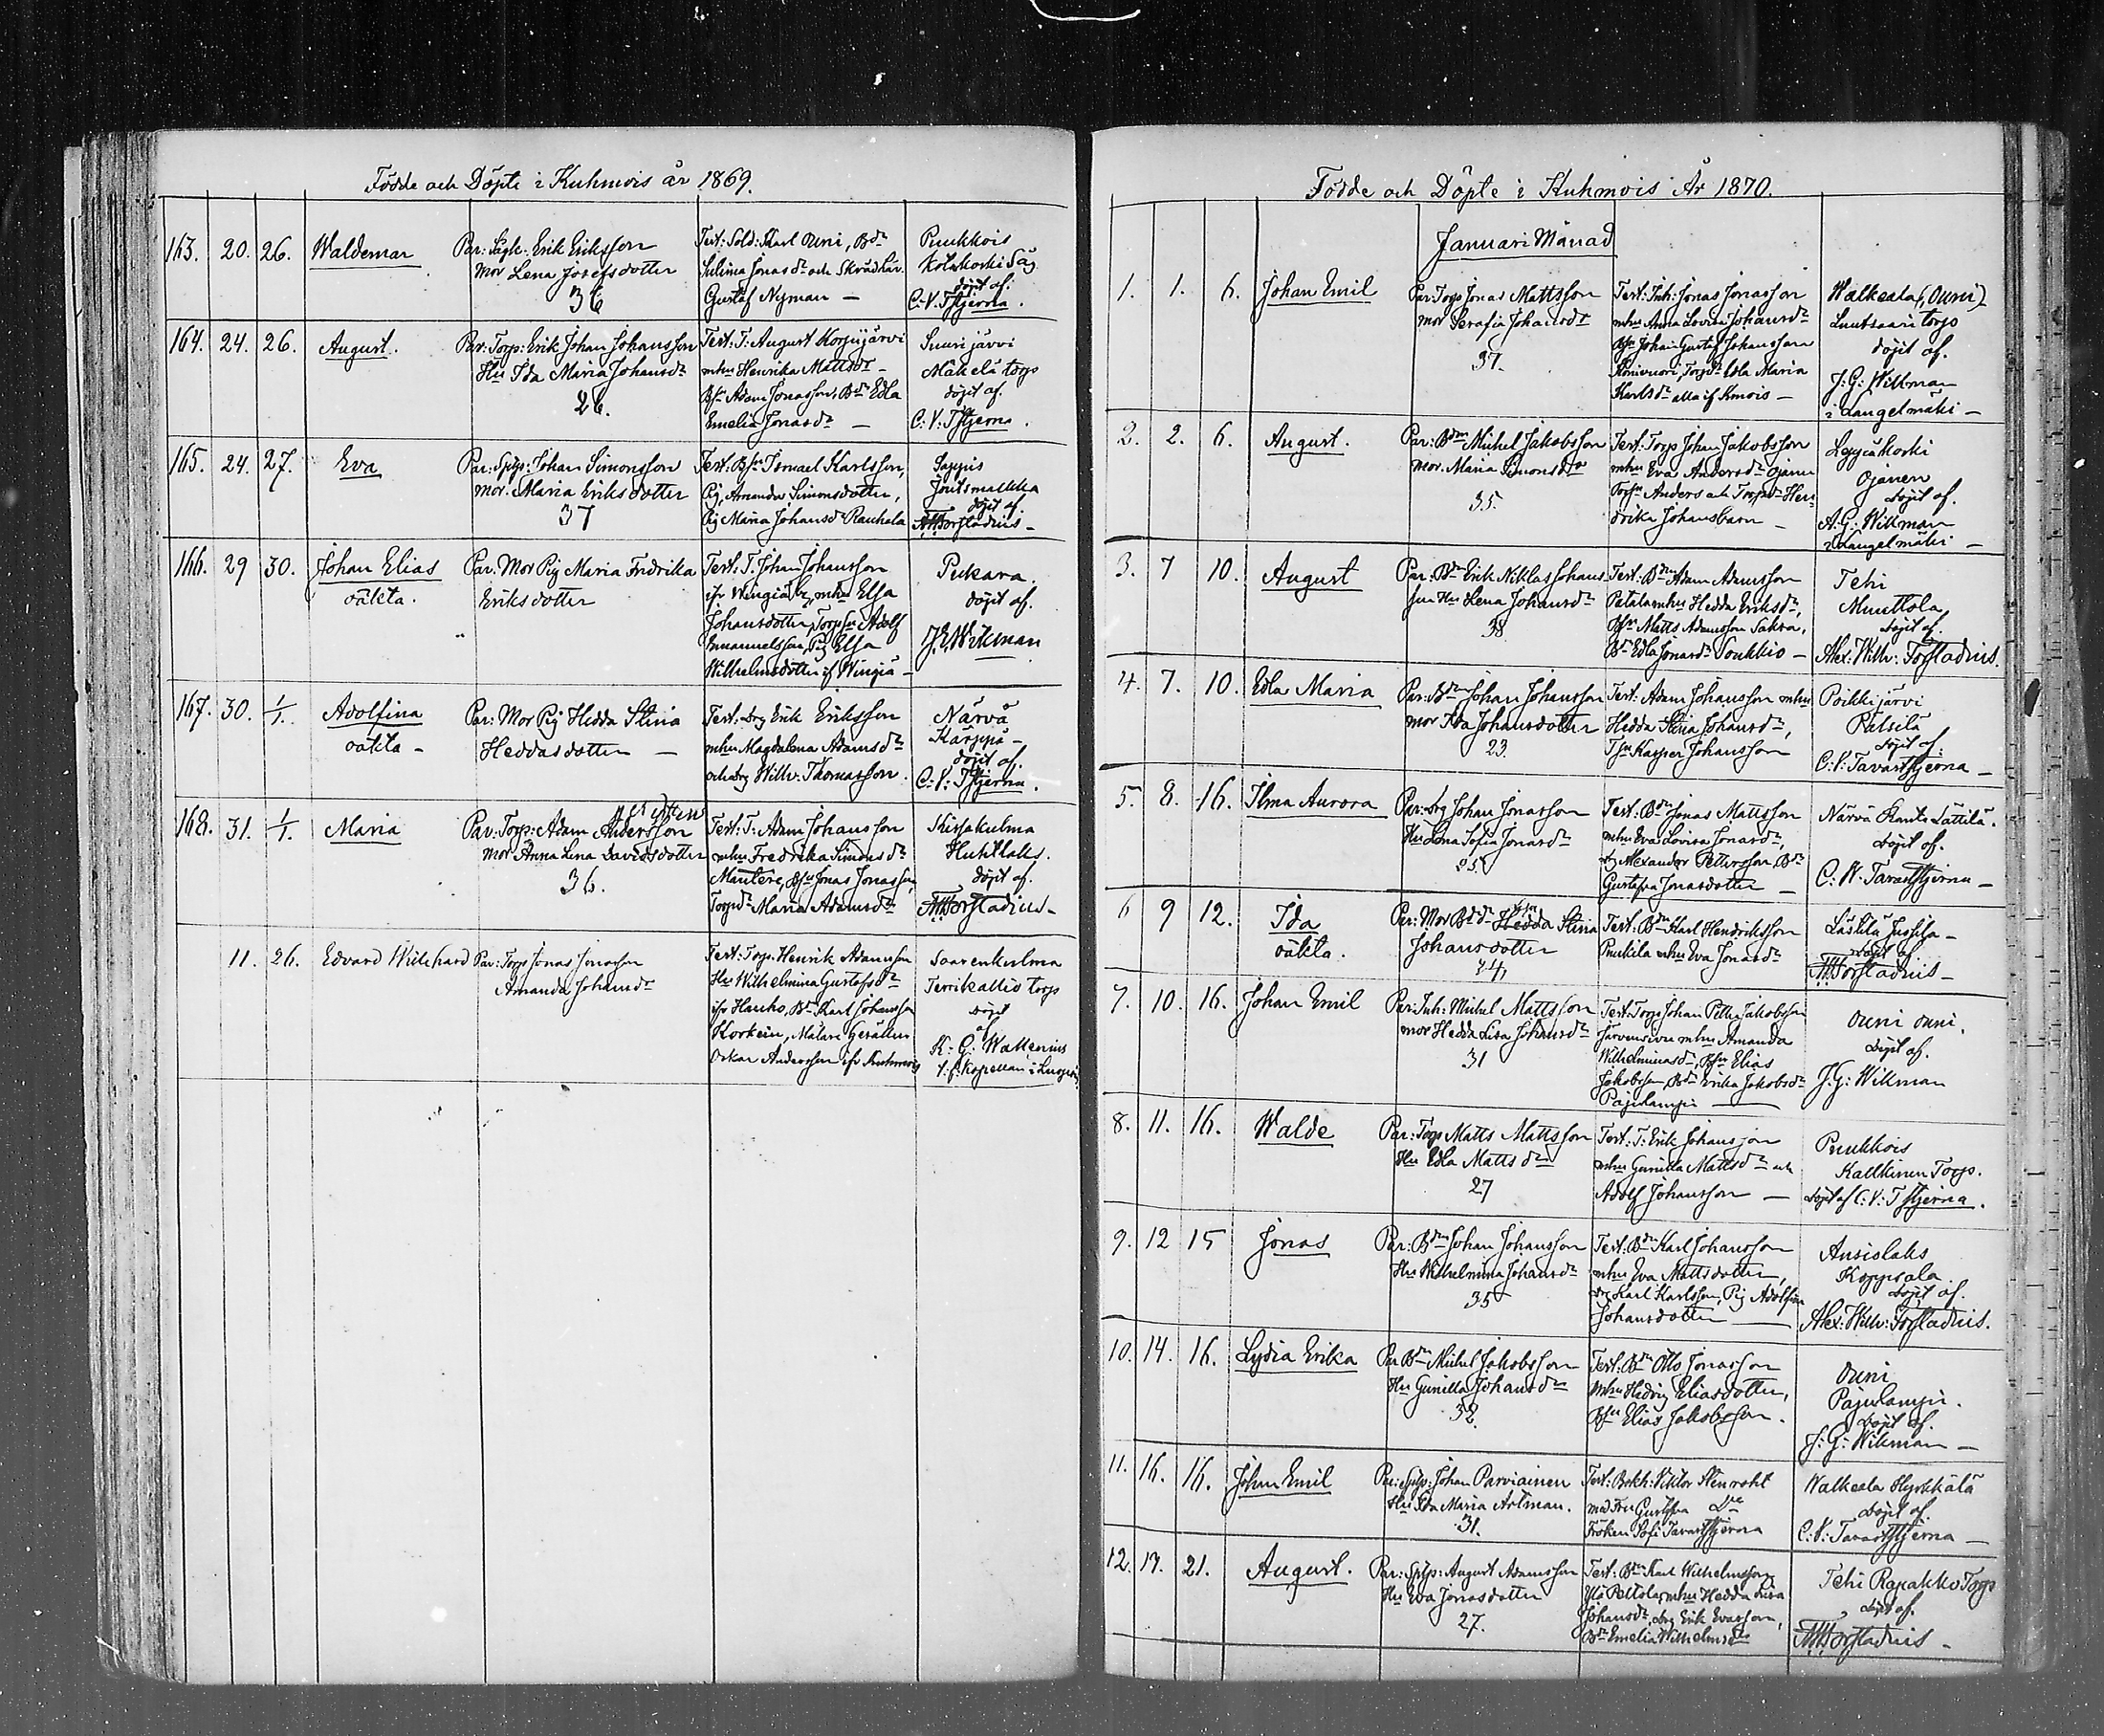 Födde och Döpte i Kuhmois år 1869.
163. 20. 26. Waldemar
Par: Sågk: Erik Eriksson
mor Lena Josefsdotter
36
Test: Sold: Karl Ouni, Bdr
Sulima Jonasdr och Skräddar.
Gustaf Nyman —
Puukkois
Kolukoski Såg
döpt af.
C: V: Tstjerna.
164. 24. 26. August.
Par: Torp: Erik Johan Johansson
Hu Ida Maria Johansdr
26.
Test: T: August Korpijärvi
mhu Henrika Mattsdr —
Bsn Adam Jonasson, Bdr Edla
Emelia Jonasdr —
Suurijärvi
Mäkelä torp
döpt af.
C: V: Tstjerna.
165. 24. 27. Eva
Par: Sptp: Johan Simonsson
mor. Maria Eriksdotter
37
Test. Bsn Ismael Karlsson,
Pig Amanda Simonsdotter,
Pig Maria Johansdr Rauhala
Sappis
Joutsmakka
döpt af.
AWForstadius —
166. 29 30. Johan Elias
oäkta.
Par. Mor Pig Maria Fredrika
Eriksdotter
Test. T. Johan Johansson
ifr Wingiä, mhu Elsa
Johansdotter, Torpsn Adolf
Emanuelsson, Pig Elsa
Wilhelmsdotter if Wingiä —
Pukara.
döpt af.
J. G. Wikman
167. 30. 1/1. Adolfina
oäkta —
Par: Mor Pig Hedda Stina
Heddasdotter —
Test: Drg Erik Eriksson
mhu Magdalena Adamsdr
och drg Wilh: Thomasson.
Närvä
Karppä —
döpt af.
C: V: Tstjerna.
168. 31. 1/1. Maria
Par: Torp: Adam Andersson
mor Anna Lena Davidsdotter
36.
Test: T: Adam Johansson
mhu Fredrika Simonsdr
Mäntere, Bsn Jonas Jonasson,
Torpdr Maria Adamsdr
Kissakulma
Huhtlaks.
döpt af.
AWForstadius —
11. 26. Edvard Willehard
Par: Torp Jonas Jonasson
Amanda Johansdr
Test: Torp. Henrik Adamsson
Hu Wilhelmina Gustafsdr
ifr Hauko, Bdn Karl Johansson
Korkein, Målare Gesällen
Oskar Andersson ifr Kuhmois
Saarenkulma
Terrikallio torp
döpt
af
K: G: Wallenius
t. f. Kapellan i Luopiois
Födde och Döpte i Kuhmois År 1870.
Januari Månad
1. 1. 6. Johan Emil
Par: Torp Jonas Mattsson
mor Serafia Johansdr
37.
Test: Inh: Jonas Jonasson
mhu Anna Lovisa Johansdr
Bsn Johan Gustaf Johansson
Konivuori, Torpdr Edla Maria
Karlsdr alla if Kmois —
Walkeala (Ouni)
Luutsaari torp
döpt af.
J: G: Wikman
i Längelmäki —
2. 2. 6. August.
Par: Bdn Mikel Jakobsson
mor. Maria Simonsdr
35.
Test: Torp Johan Jakobsson
mhu Eva Andersdr Ojanen
Torpsn Anders och Torpdr Hen-
drika Johansbarn —
Leppäkoski
Ojanen
döpt af.
J. G: Wikman
i Längelmäki —
3. 7 10. August
Par: Bdn Erik Niklas Johans
son Hu Lena Johansdr
38
Test: Bdn Adam Adamsson
Patala mhu Hedda Eriksdr,
Bsn Matts Adamsson Saksa,
Bdr Edla Jonasdr Soukkio —
Tehi
Muuttola
döpt af.
Alex: Wilh: Forstadius.
4. 7. 10. Edla Maria
Par: Bdn Johan Johansson
mor Ida Johansdotter
23.
Test: Adam Johansson mhu
Hedda Stina Johansdr,
Tsn Kasper Johansson
Poikkijärvi
Patsila
döpt af.
C: V: Tavaststjerna —
5. 8. 16. Ilma Aurora
Par: drg Johan Jonasson
Hu Lena Sofia Jonasdr
25.
Test: Bdn Jonas Mattsson
mhu Eva Lovisa Jonasdr,
drg Alexander Pettersson, Bdr
Gustafva Jonasdotter —
Närvä Lättilä.
döpt af.
C: V: Tavaststjerna —
6 9 12. Ida
oäkta.
Par: Mor Bdr Hedda Stina
Johansdotter
24,
Test: Bdn Karl Hendriksson
Puukila mhu Eva Jonasdr
Lästilä Jussila —
döpt af
AWForstadius —
7. 10. 16. Johan Emil
Par: Inh: Mikel Mattsson
mor Hedda Lisa Johansdr
31
Test: Torp Johan Petter Jakobsson
Järvensivu mhu Amanda
Wilhelminasdr, Bsn Elias
Jakobsson, Bdr Erika Jakobsdr
Pajulampi —
Ouni Ouni.
döpt af.
J: G: Wikman
8. 11. 16. Walde
Par: Torp Matts Mattsson
Hu Edla Mattsdr
27
Test: T: Erik Johansson
mhu Gunilla Mattsdr och
Adolf Johansson —
Puukkois
Kalkkinen Torp.
döpt af C: V: Tstjerna.
9. 12 15 Jonas
Par: Bdn Johan Johansson
Hu Wilhelmina Johansdr
35
Test: Bdn Karl Johansson
mhu Eva Mattsdotter,
drg Karl Karlsson, Pig Adolfina
Johansdotter —
Ansiolaks
Koppsala.
döpt af.
Alex: Wilh: Forstadius.
10. 14. 16. Lydia Erika
Par Bdn Mikel Jakobsson
Hu Gunilla Johansdr
32.
Test: Bdn Otto Jonasson
Mhu Hedvig Eliasdotter,
Bsn Elias Jakobsson.
Ouni
Pajulampi.
döpt af.
J: G: Wikman —
11. 16. 16. Johan Emil
Par: Sptp: Johan Parviainen
Hu Ida Maria Artman.
31.
Test: Bokh: Viktor Stenroth
med Fru Gustafva Do
Fröken Sofi Tavaststjerna
Walkeala Hyrkkälä
döpt af.
C: V: Tavaststjerna —
12. 17. 21. August.
Par: Sptp: August Adamsson
Hu Eva Jonasdotter
27.
Test: Bdn Karl Wilhelmsson
Yli Pelttola, mhu Hedda Lovisa
Johansdr, drg Erik Evasson,
Bdr Emelia Wilhelmsdr
Tehi Rapakko Torp
döpt af.
AWForstadius —